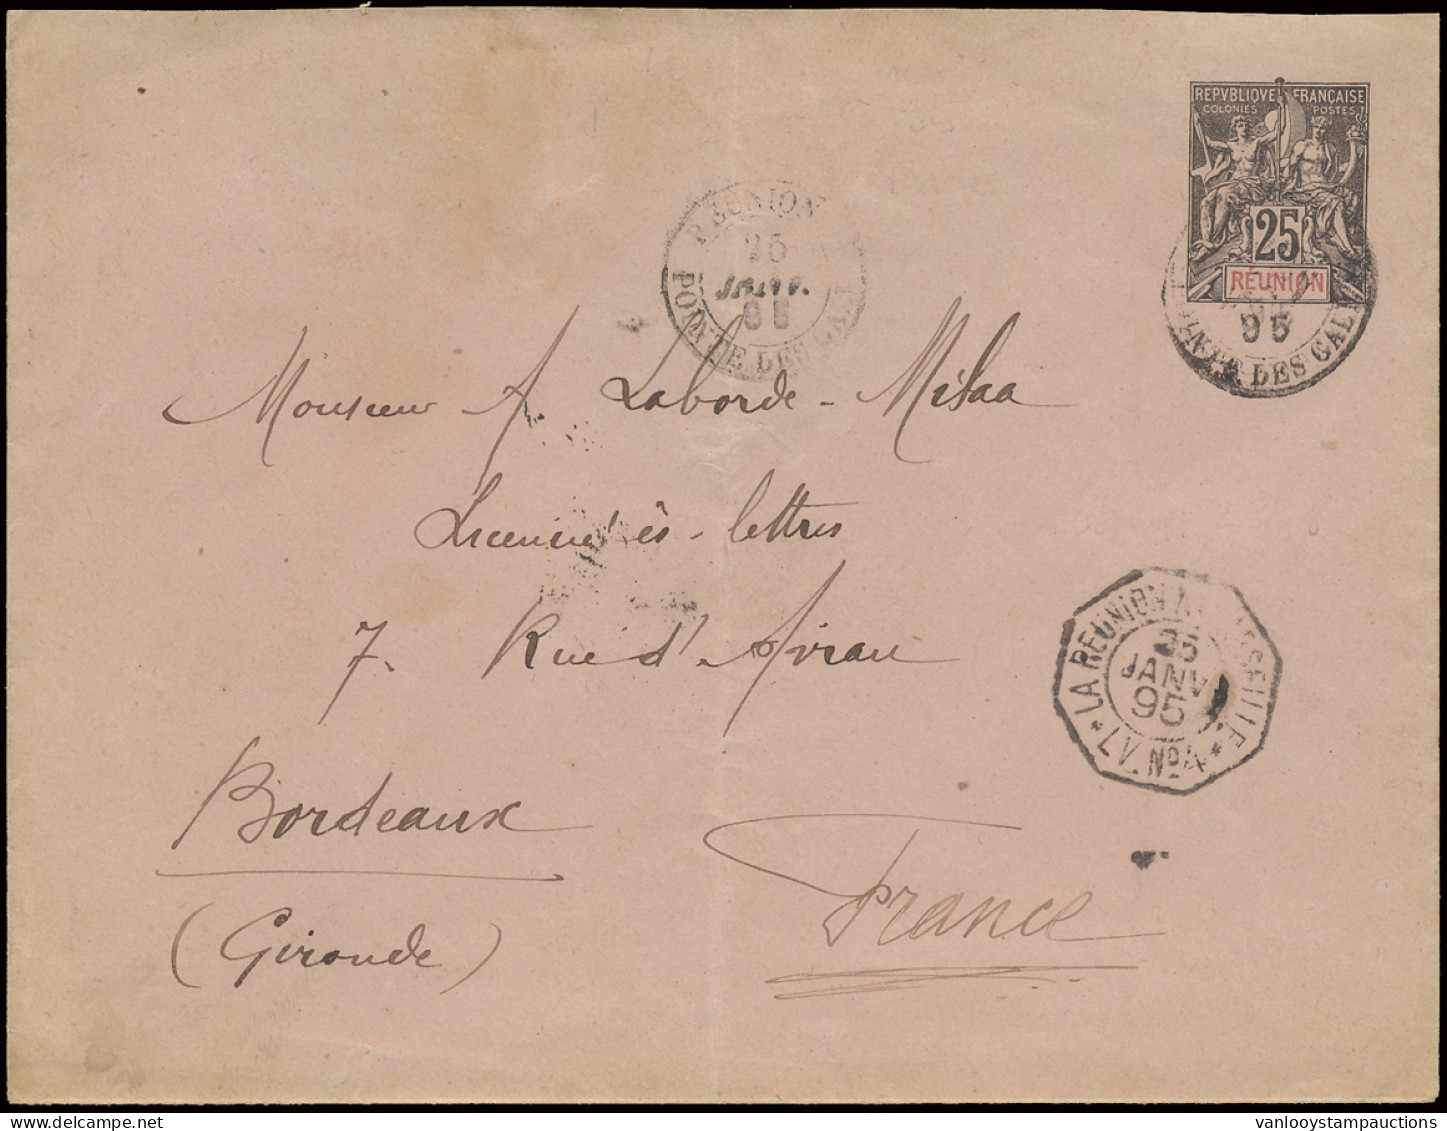 REPVBLIQVE FRANÇAISE
COLONIES POSTES
25
RÉUNION
95
POINTE DES GAL
REUNION
JANV.
POINTE DES GAL
Monsieur A. Laborde - Milaa
Licencié ès-lettres
7. Rue d'Aviau
LA REUNION A MARSEILLE
JANV
95
* L.V. No 4 *
Bordeaux
(Gironde)
France
vanlooystampauctions